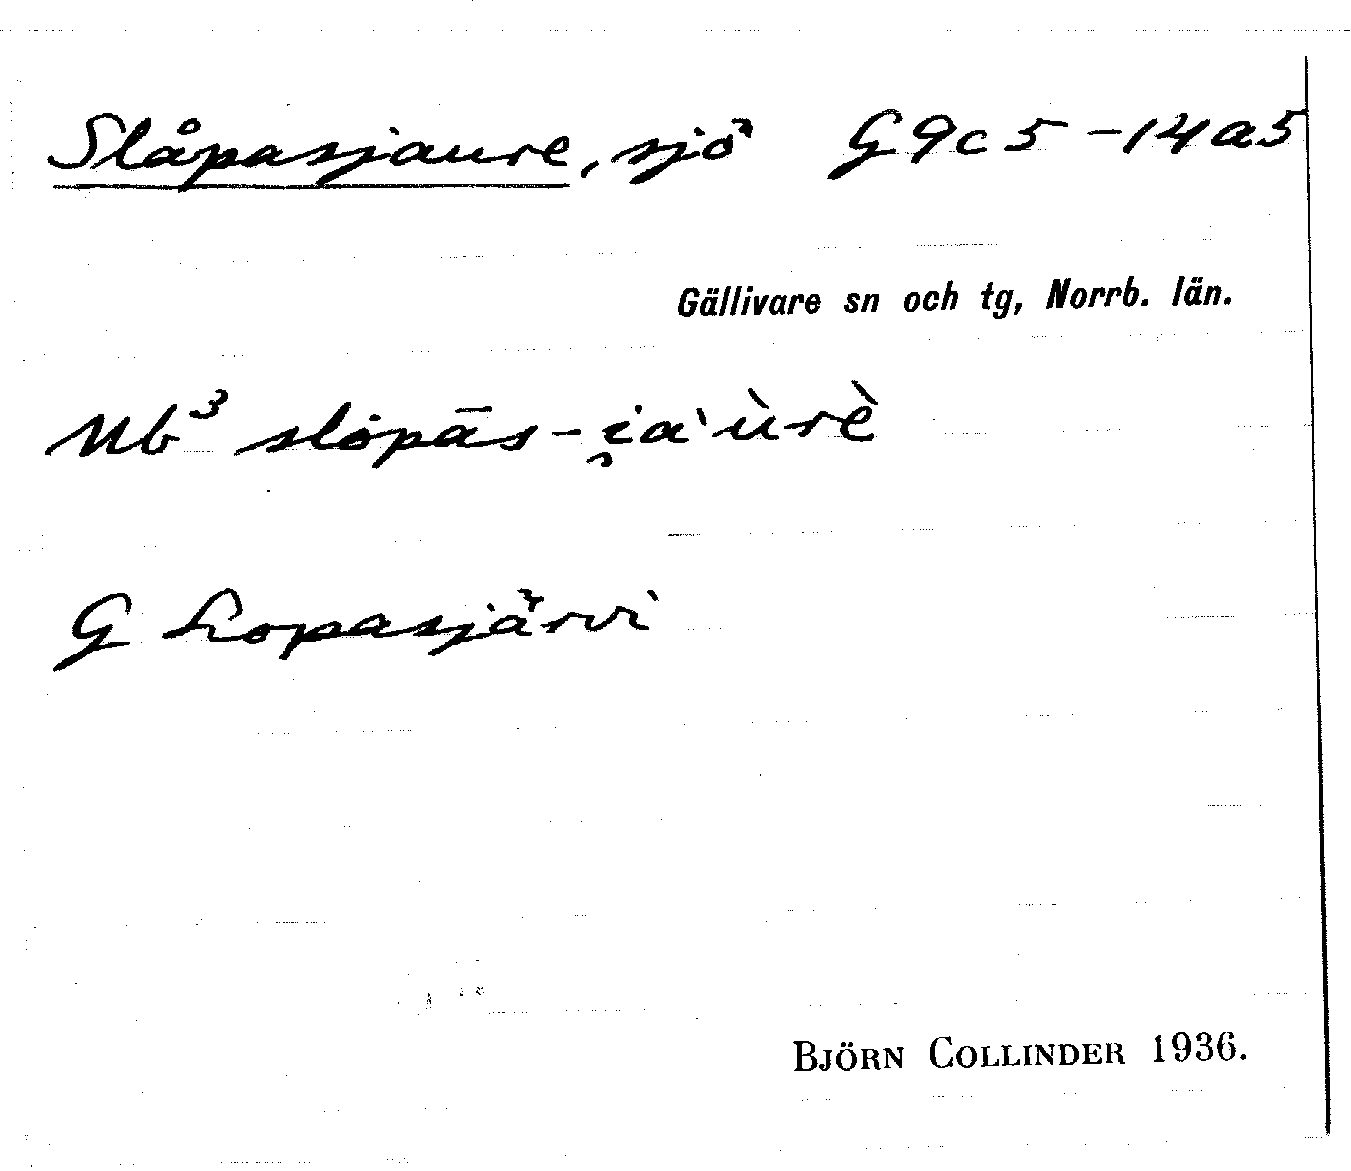 Slåpasjaure, sjö G 9c5-14a5
Gällivare sn och tg, Norrb. län.
Nb³ slȯpās-i̯a'ùrè
G Lopasjärvi
BJÖRN COLLINDER 1936.